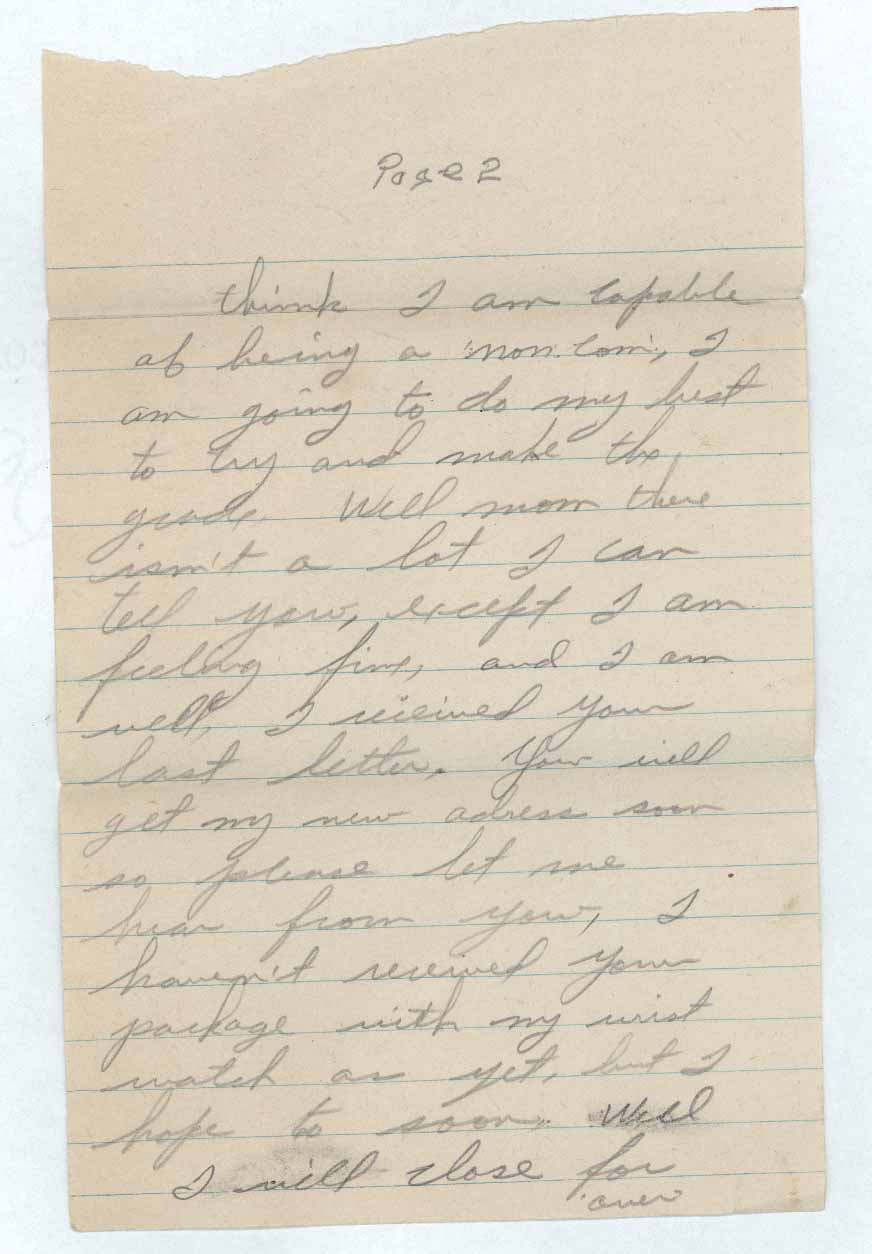 Page 2
think I am capable
of being a "non. com", I
am going to do my best
to try and make the
grade. Well mom there
isn't a lot I can
tell you, except I am
feeling fine, and I am
well, I received your
last letter. You will
get my new adress soon
so please let me
hear from you, I
haven't received your
package with my wrist
watch as yet, but I
hope to soon. Well
I will close for
over